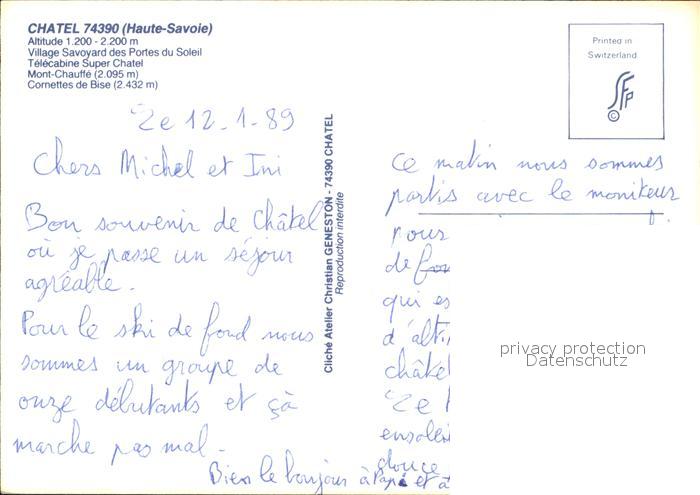 CHATEL 74390 (Haute-Savoie)
Altitude 1.200 - 2.200 m
Village Savoyard des Portes du Soleil
Télécabine Super Chatel
Mont-Chauffé (2.095 m)
Cornettes de Bise (2.432 m)
Printed in
Switzerland
SFP
©
Le 12-1-89
Chers Michel et Ini
Bon souvenir de Châtel
où je passe un séjour
agréable.
Pour le ski de fond nous
sommes un groupe de
onze débutants et çà
marche pas mal.
Bien le bonjour à Papi et à
Cliché Atelier Christian GENESTON - 74390 CHATEL
Reproduction interdite
Ce matin nous sommes
partis avec le moniteur
pour
de fon
qui es
d'alti
châtel
Le
ensolei
douce
privacy protection
Datenschutz